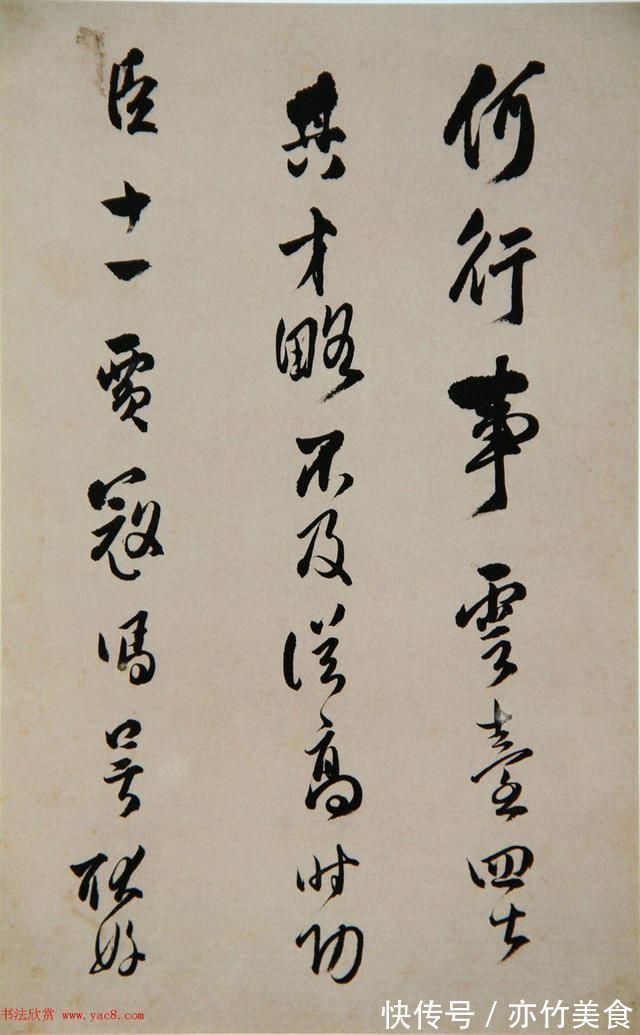 何行事雲臺四七
其才略不及從高時功
臣十一賈寇馮号耿好
书法欣赏 www.yac8.com
快传号/亦竹美食